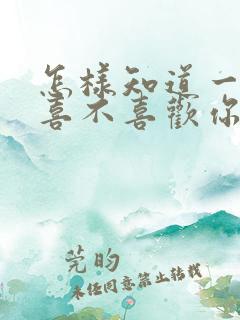 怎樣知道一
喜不喜歡你
莞昀
未經同意禁止轉載